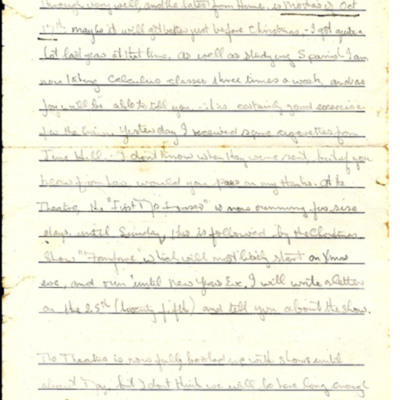 through very well, and the latest from Home, is Mothers of Oct
17th maybe it will get better just before Christmas - I got quite a
lot last year at that time. As well as studying Spanish I am
now taking Calculus classes three times a week, and as
Joy will be able to tell you - it is certainly good exercise
for the brain. Yesterday I received some cigarettes from
Hill - I don't know when they were sent, but if you
hear from her would you pass on my thanks. At the
Theatre, the "First Mrs Fraser" is now running for six
days until Sunday, this is followed by the Christmas
Show " " which will most likely start on Xmas
eve, and run until New Years Eve. I will write a letter
on the 25th (twenty fifth) and tell you about the show.
The Theatre is now fully booked up with shows until
about May, but I don't think we will be here long enough